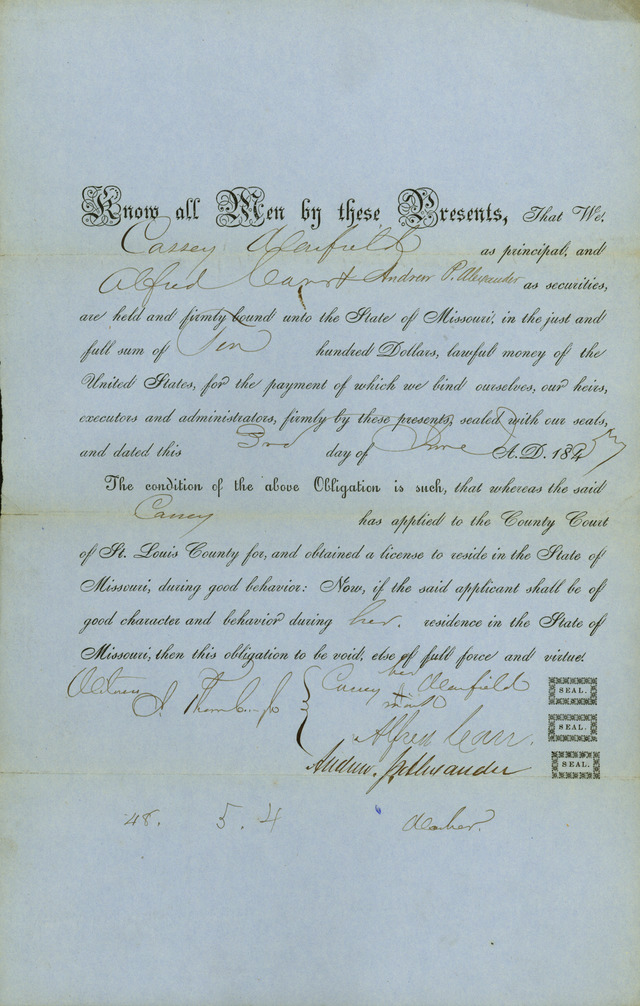 Know all Men by these Presents, That We,
Cassey as principal, and
Alfred Carr & Andrew P. Alexander as securities,
are held and firmly bound unto the State of Missouri, in the just and
full sum of Ten hundred Dollars, lawful money of the
United States, for the payment of which we bind ourselves, our heirs,
executors and administrators, firmly by these presents, sealed with our seals,
and dated this 3rd day of June A.D. 184
The condition of the above Obligation is such, that whereas the said
Cassey has applied to the County Court
of St. Louis County for, and obtained a license to reside in the State of
Missouri, during good behavior: Now, if the said applicant shall be of
good character and behavior during her. residence in the State of
Missouri, then this obligation to be void, else of full force and virtue.
her
Witness Cassey + SEAL.
mark
Alfred Carr. SEAL.
Andrew. P. Alexander SEAL.
48. 5. 4